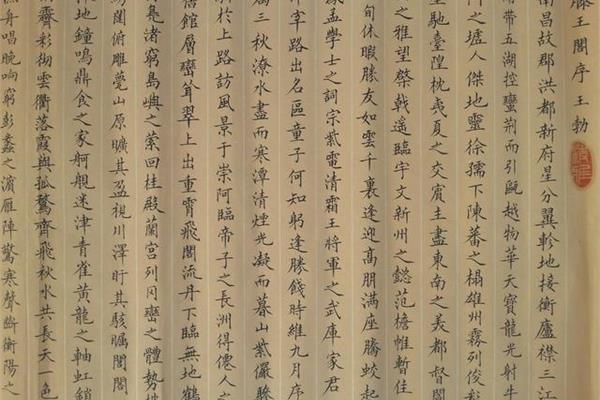 滕王閣序 王勃
南昌故郡洪都新府星分翼軫地接衡廬襟三江
而帶五湖控蠻荊而引甌越物華天寶龍光射牛
斗之墟人傑地靈徐孺下陳蕃之榻雄州霧列俊彩
星馳臺隍枕夷夏之交賓主盡東南之美都督閻
公之雅望棨戟遙臨宇文新州之懿范襜帷暫住
十旬休暇勝友如雲千裏逢迎高朋滿座騰蛟起
鳳孟學士之詞宗紫電清霜王將軍之武庫家君
作宰路出名區童子何知躬逢勝餞時維九月序
屬三秋潦水盡而寒潭清煙光凝而暮山紫儼驂
騑於上路訪風景于崇阿臨帝子之長洲得僊人之
舊館層巒聳翠上出重霄飛閣流丹下臨無地鶴
汀鳧渚窮島嶼之縈回桂殿蘭宮列岡巒之體勢
繡闥俯雕甍山原曠其盈視川澤盱其駭矚閭閻
撲地鐘鳴鼎食之家舸艦迷津青雀黃龍之軸虹銷
霽彩彻雲衢落霞與孤鶩齊飛秋水共長天一色
漁舟唱晚响窮彭蠡之濱雁陣驚寒聲斷衡陽之